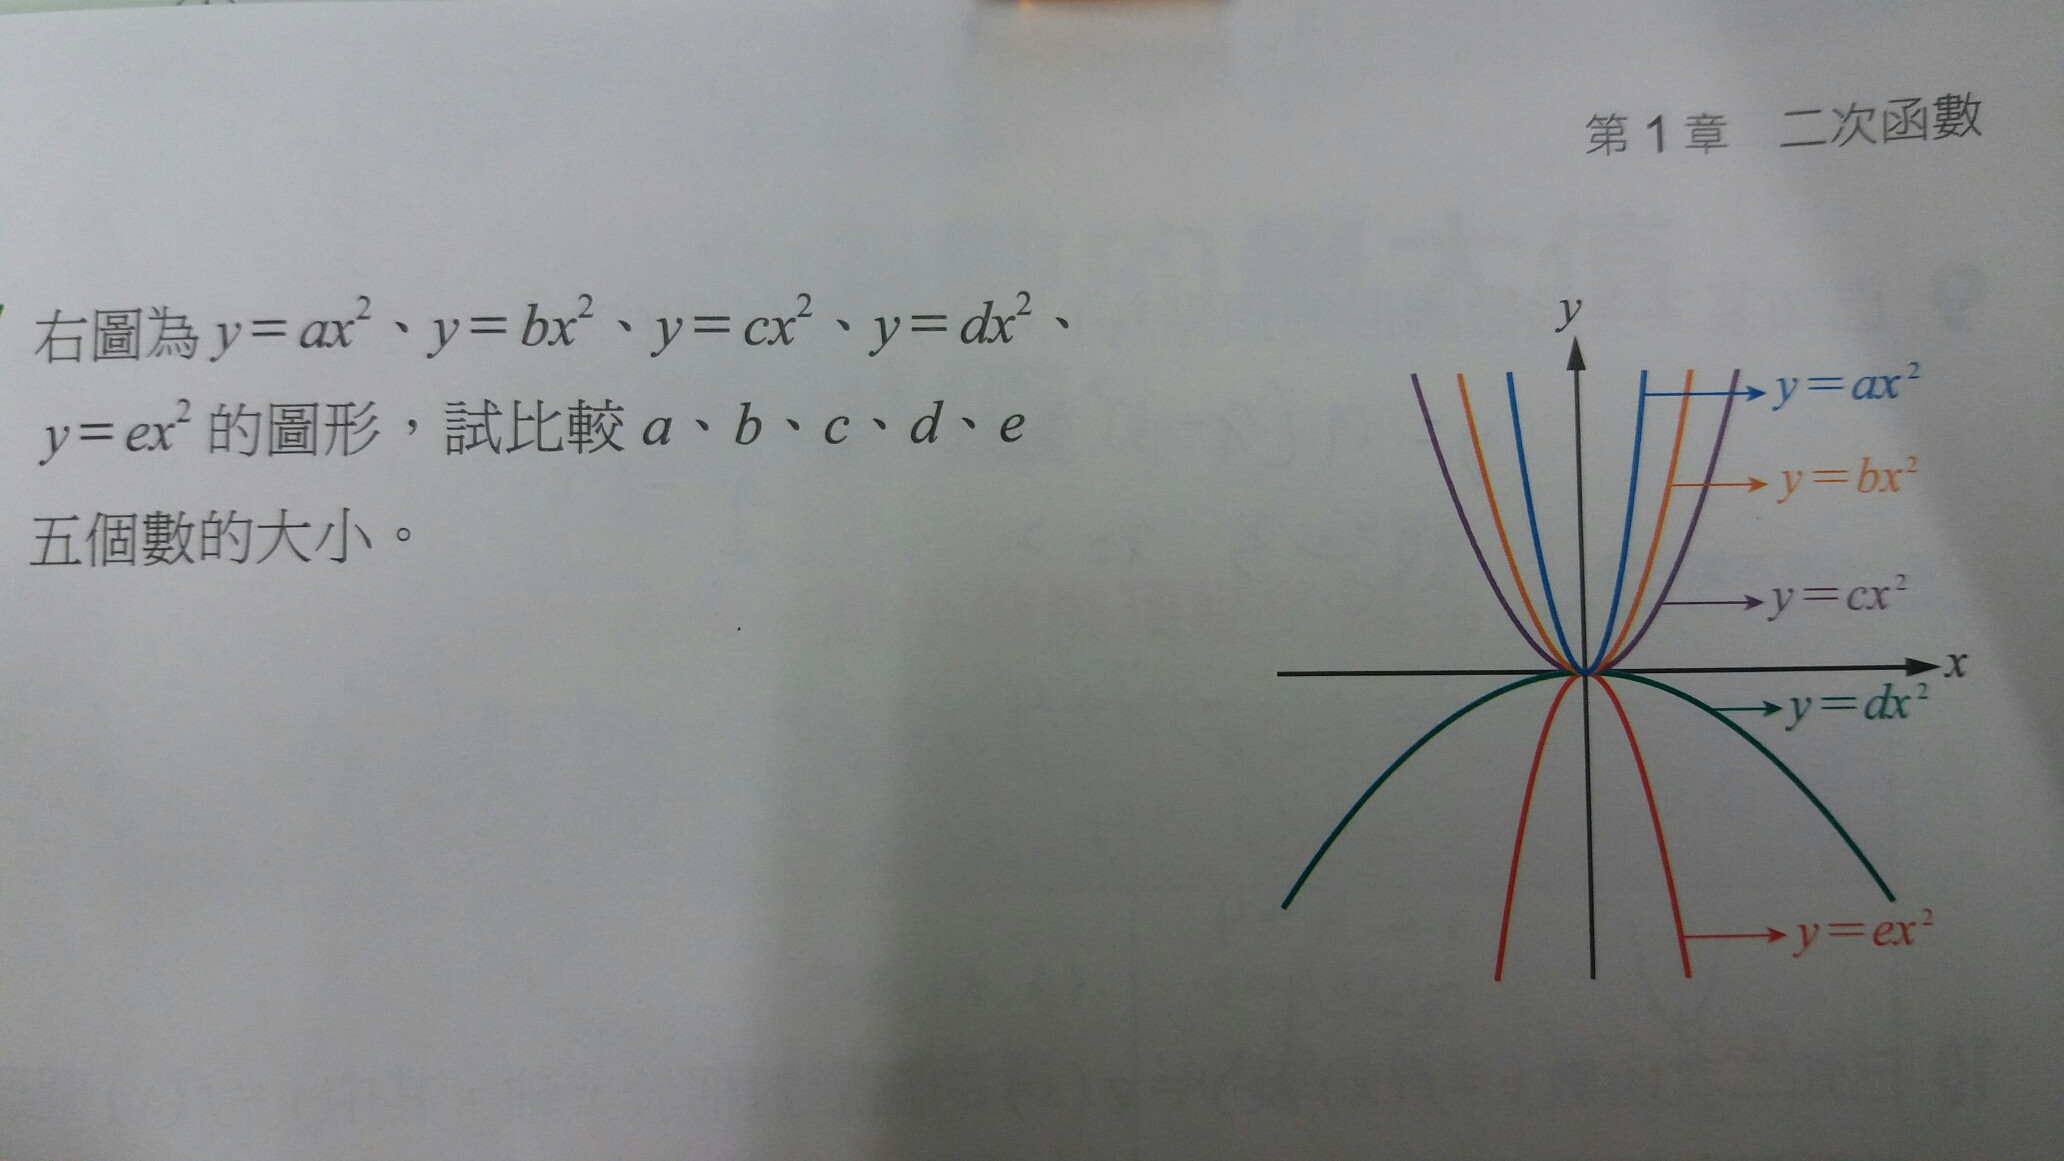 第 1 章 二次函數
右圖為 y＝ax²、y＝bx²、y＝cx²、y＝dx²、
y＝ex² 的圖形，試比較 a、b、c、d、e
五個數的大小。
y
y＝ax²
y＝bx²
y＝cx²
x
y＝dx²
y＝ex²